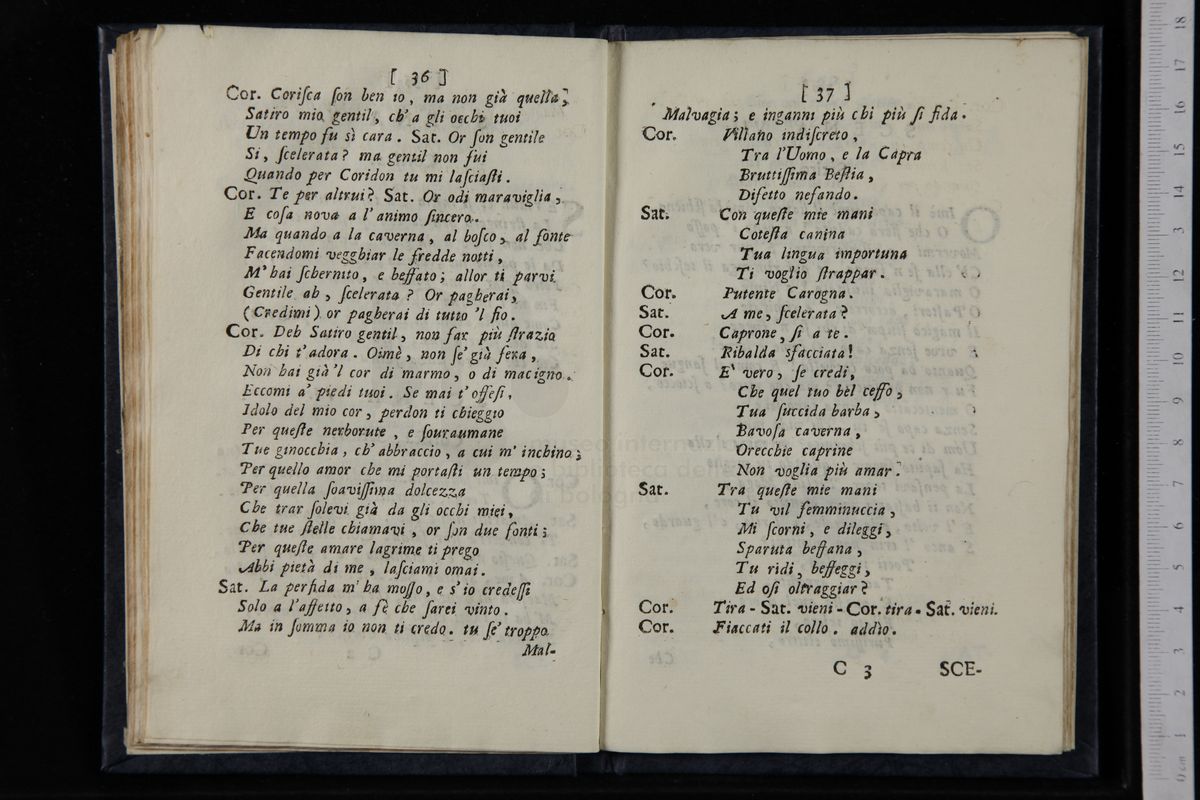 [ 36 ]
Cor. Coriſca ſon ben io, ma non già quella,
Satiro mio gentil, ch' a gli occhi tuoi
Un tempo fu sì cara. Sat. Or ſon gentile
Sì, ſcelerata? ma gentil non fui
Quando per Coridon tu mi laſciaſti.
Cor. Te per altrui? Sat. Or odi maraviglia,
E coſa nova a l' animo ſincero.
Ma quando a la caverna, al boſco, al fonte
Facendomi vegghiar le fredde notti,
M' hai ſchernito, e beffato; allor ti parvi
Gentile ah, ſcelerata? Or pagherai,
(Credimi) or pagherai di tutto 'l fio.
Cor. Deh Satiro gentil, non far più ſtrazio
Di chi t' adora. Oimè, non ſe' già fera,
Non hai già 'l cor di marmo, o di macigno.
Eccomi a' piedi tuoi. Se mai t' offeſi,
Idolo del mio cor, perdon ti chieggio
Per queſte nerborute, e ſouraumane
Tue ginocchia, ch' abbraccio, a cui m' inchino;
Per quello amor che mi portaſti un tempo;
Per quella ſoaviſſima dolcezza
Che trar ſolevi già da gli occhi miei,
Che tue ſtelle chiamavi, or ſon due fonti;
Per queſte amare lagrime ti prego
Abbi pietà di me, laſciami omai.
Sat. La perfida m' ha moſſo, e s' io credeſſi
Solo a l'affetto, a fè che ſarei vinto.
Ma in ſomma io non ti credo. tu ſe' troppo
Mal-
[ 37 ]
Malvagia; e inganni più chi più ſi fida.
Cor. Villano indiſcreto,
Tra l'Uomo, e la Capra
Bruttiſſima Beſtia,
Difetto nefando.
Sat. Con queſte mie mani
Coteſta canina
Tua lingua importuna
Ti voglio ſtrappar.
Cor. Putente Carogna.
Sat. A me, ſcelerata?
Cor. Caprone, ſì a te.
Sat. Ribalda sfacciata!
Cor. E' vero, ſe credi,
Che quel tuo bel ceffo,
Tua ſuccida barba,
Bavoſa caverna,
Orecchie caprine
Non voglia più amar.
Sat. Tra queſte mie mani
Tu vil femminuccia,
Mi ſcorni, e dileggi,
Sparuta beffana,
Tu ridi, beffeggi,
Ed oſi oltraggiar?
Cor. Tira - Sat. vieni - Cor. tira - Sat. vieni.
Cor. Fiaccati il collo. addio.
C 3 SCE-